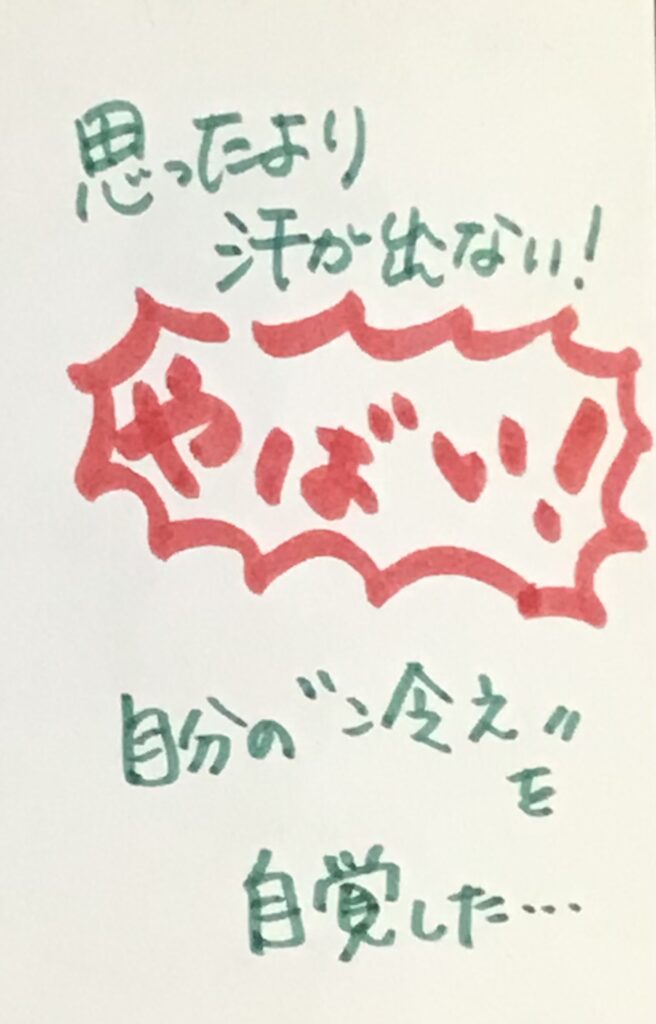 思ったより
汗が出ない!
やばい!
自分の"冷え"
を
自覚した…